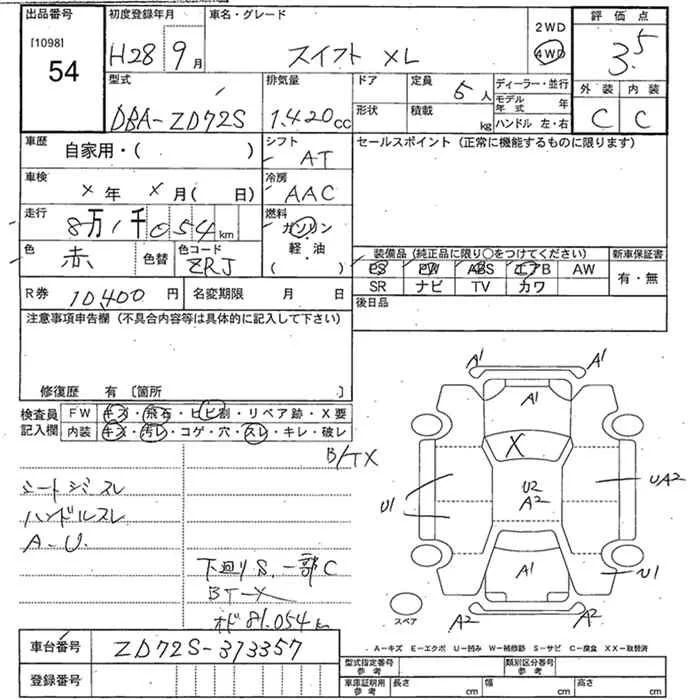 出品番号 初度登録年月 車名・グレード 評価点
[1098] 54
H28 9月 スイフト XL 2WD 4WD 3.5
型式 排気量 ドア 定員 5人 ディーラー・並行 外装 内装
DBA-ZD72S 1.420cc 形状 積載 kg モデル年式 年 ハンドル 左・右 C C
車歴 自家用・( ) シフト AT セールスポイント (正常に機能するものに限ります)
車検 X年 X月( 日) 冷房 AAC
走行 8万1千054km 燃料 ガソリン 軽・油 ( )
色 赤 色替 色コード ZRJ
装備品 (純正品に限り○をつけてください) 新車保証書
PS PW ABS エアB AW 有・無
SR ナビ TV カワ
R券 10,400円 名変期限 月 日 後日品
注意事項申告欄 (不具合内容等は具体的に記入して下さい)
修復歴 有 〔箇所 〕
検査員記入欄 FW キズ・飛石・ヒビ割・リペア跡・X要
内装 キズ・汚レ・コゲ・穴・スレ・キレ・破レ
B/TX
シートジミスレ
ハンドルスレ
A・U.
下廻りS.一部C
BT-X
オド 81.054km
A1 A1
A1
X
U1 U2 A2 UA2
A1 U1
A2 A2
スペア
A-キズ E-エクボ U-凹み W-補修跡 S-サビ C-腐食 XX-取替済
車台番号 ZD72S-373357
登録番号
型式指定番号 参考 類別区分番号 参考
車庫証明用 参考 長さ cm 幅 cm 高さ cm